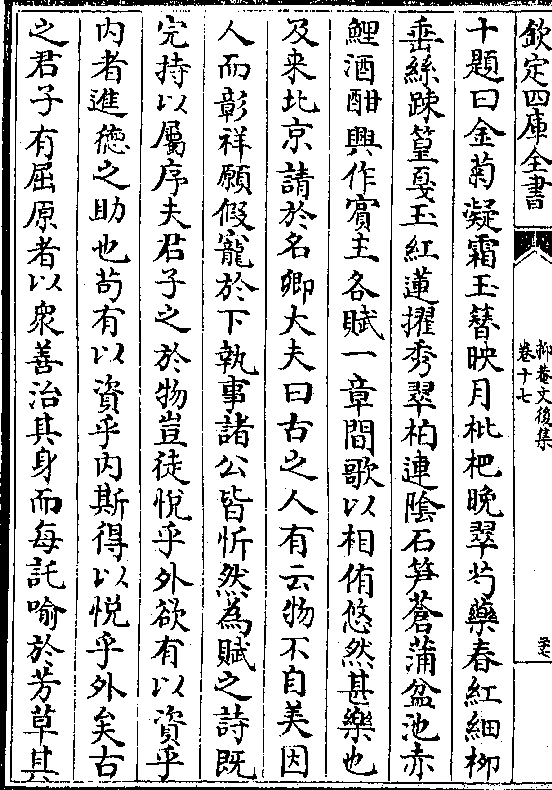 欽定四庫全書
抑菴文後集
卷十七
十題曰金菊凝霜玉簪映月枇杷晩翠芍藥春紅細栁
垂絲踈篁戛玉紅蓮擢秀翠柏連陰石笋蒼蒲盆池赤
鯉酒酣興作賔主各賦一章間歌以相侑悠然甚樂也
及来北京請於名卿大夫曰古之人有云物不自美因
人而彰祥願假寵於下執事諸公皆忻然為賦之詩既
完持以屬序夫君子之於物豈徒悦乎外欲有以資乎
内者進徳之助也苟有以資乎内斯得以悦乎外矣古
之君子有屈原者以衆善治其身而每託喻於芳草其